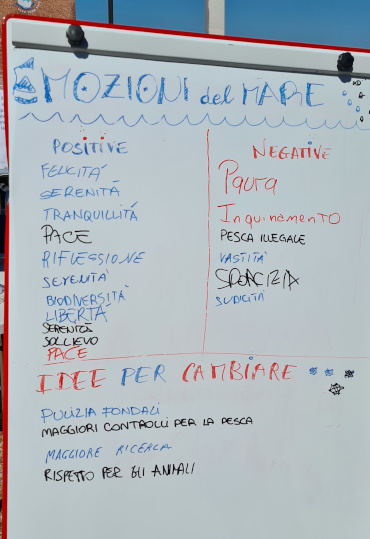 EMOZIONI del MARE
POSITIVE
FELICITÁ
SERENITÁ
TRANQUILLITÁ
PACE
RIFLESSIONE
SERENITÀ
BIODIVERSITÀ
LIBERTÁ
SERENITÀ
SOLLIEVO
PACE
NEGATIVE
Paura
Inquinamento
PESCA ILLEGALE
VASTITÀ
SPORCIZIA
SUDICITÀ
IDEE PER CAMBIARE
PULIZIA FONDALI
MAGGIORI CONTROLLI PER LA PESCA
MAGGIORE RICERCA
RISPETTO PER GLI ANIMALI